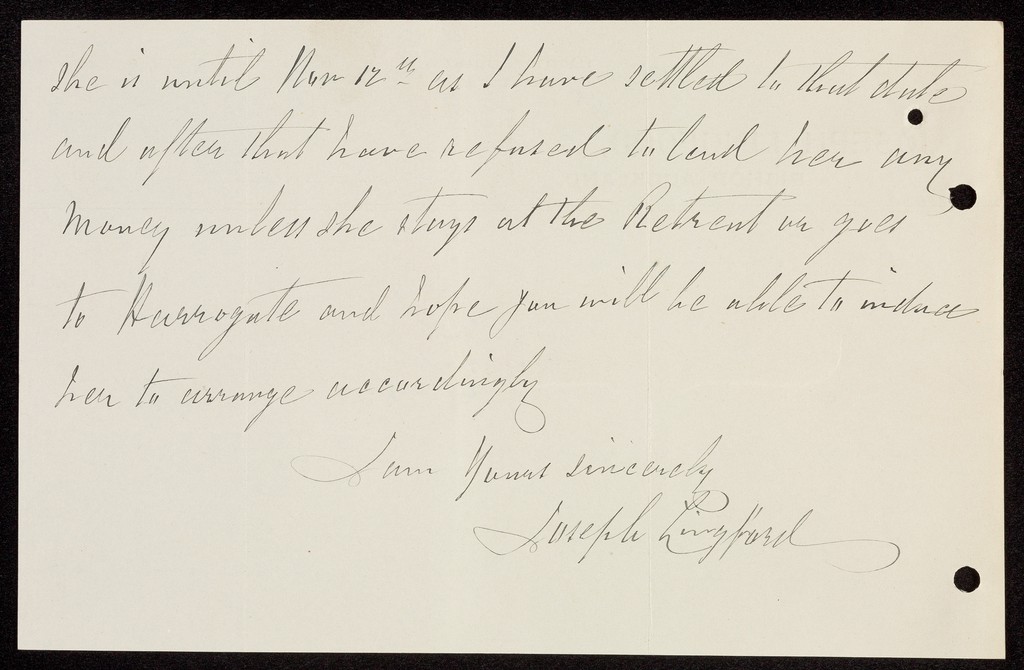 she is until Nov 12th as I have settled to that date
and after that have refused to lend her any
money unless she stays at the Retreat or goes
to Harrogate and hope you will be able to induce
her to arrange accordingly
I am Yours sincerely
Joseph Lingford